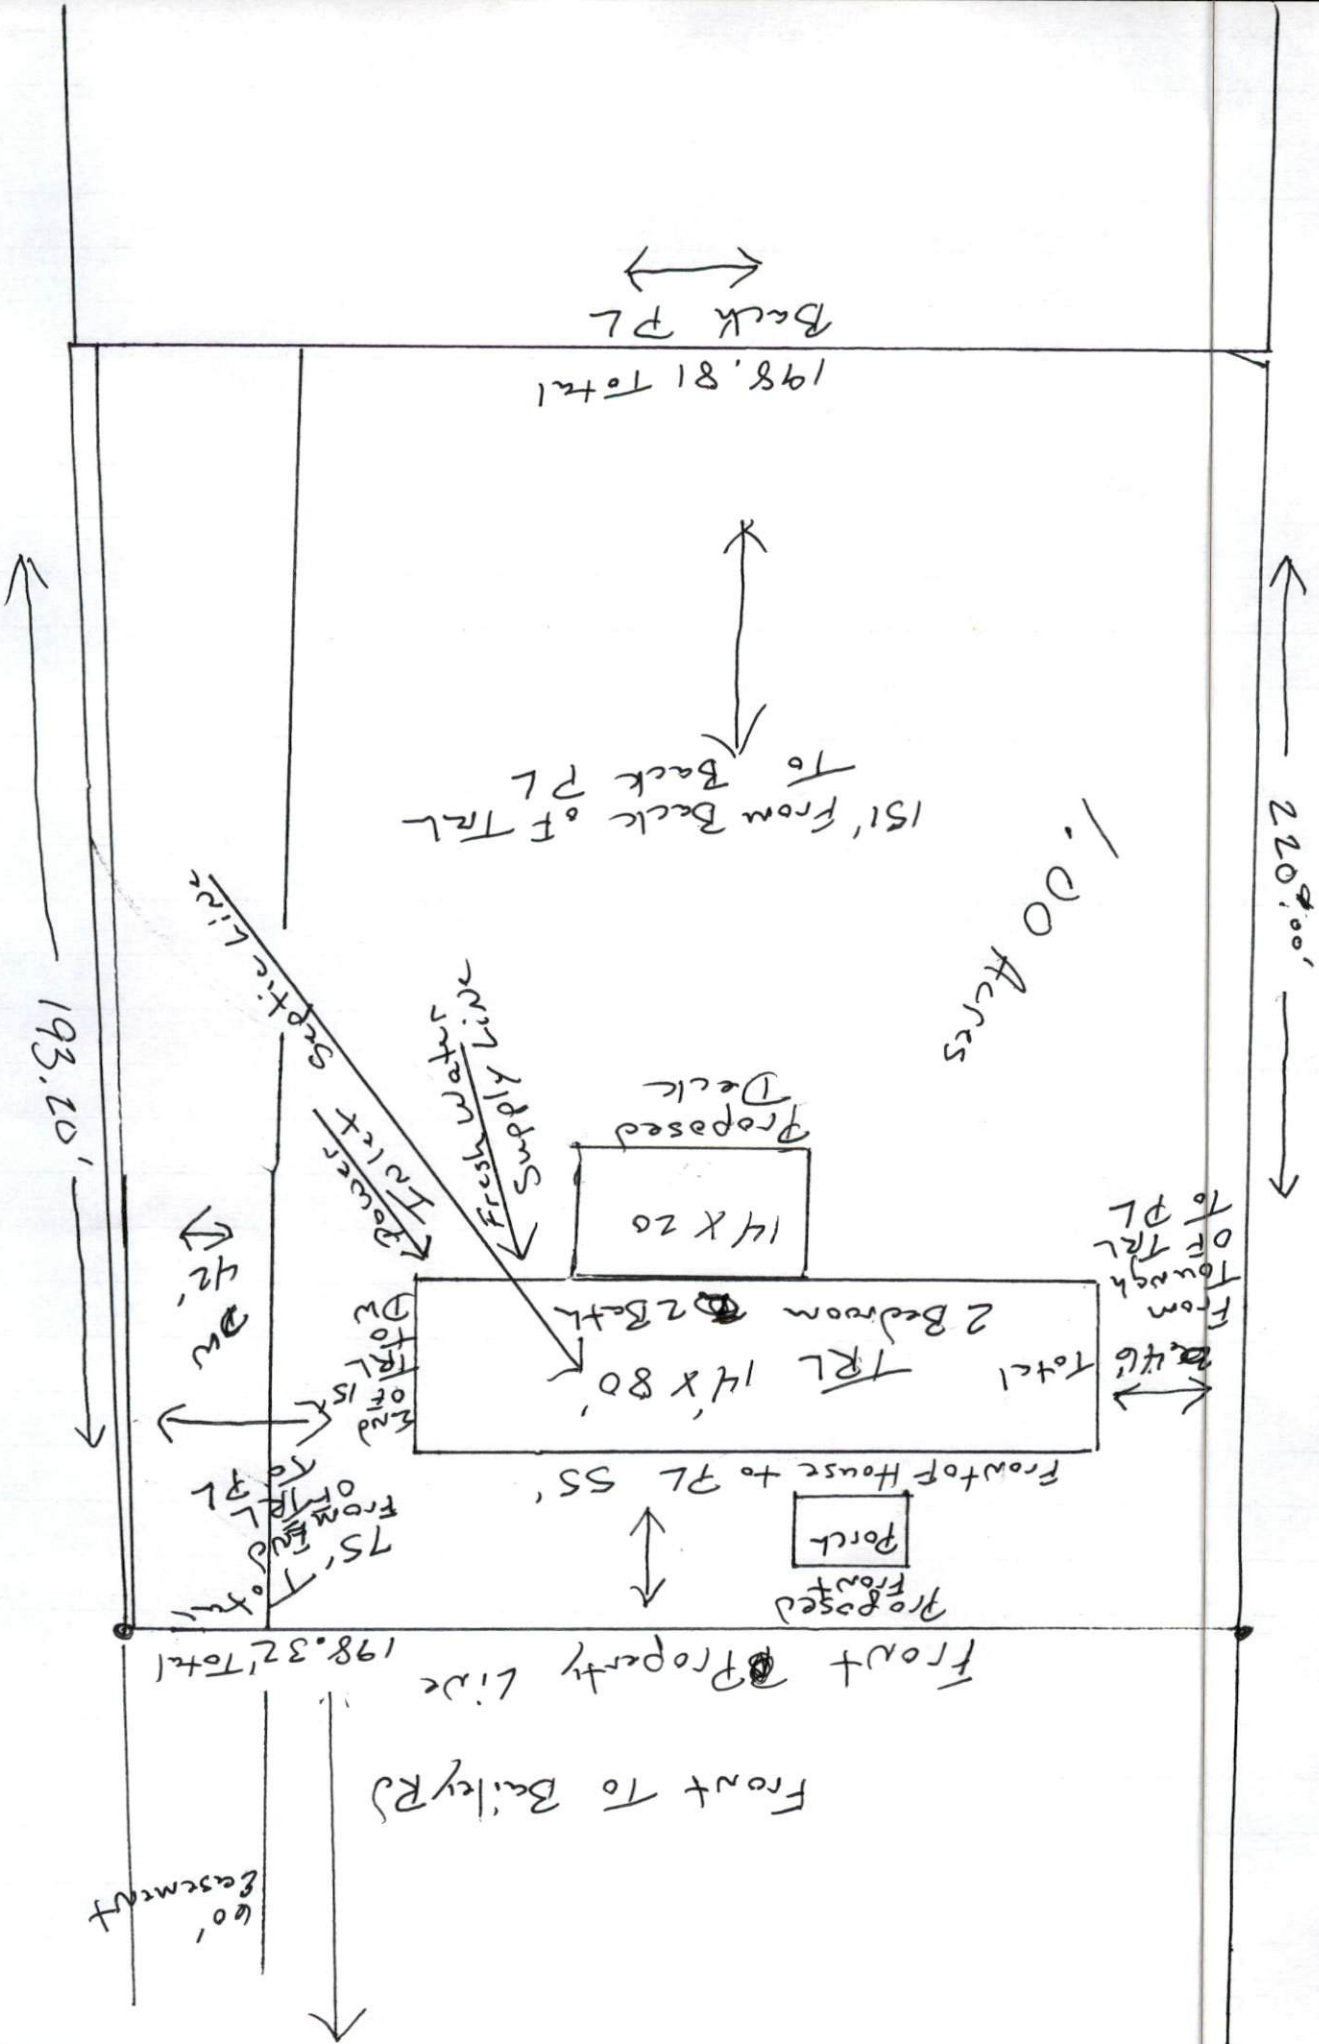 60'
Easement
Front To Bailey Rd
Front Property Line
198.32' Total
Proposed
Front
Porch
Front oF House to PL 55'
75' Total
From End
OF TRL
To
PL
End
OF 15'
TRL
To
DW
14' x 80'
TRL
Total
2 Bedroom 2 Bath
46'
From
Tough
OF TRL
To
PL
DW
42'
14 x 20
Proposed
Deck
Power
Inlet
Fresh Water
Supply Line
Septic Line
1.00 Acres
151' From Back oF TRL
To Back PL
193.20'
220.00'
198.81 Total
Back PL